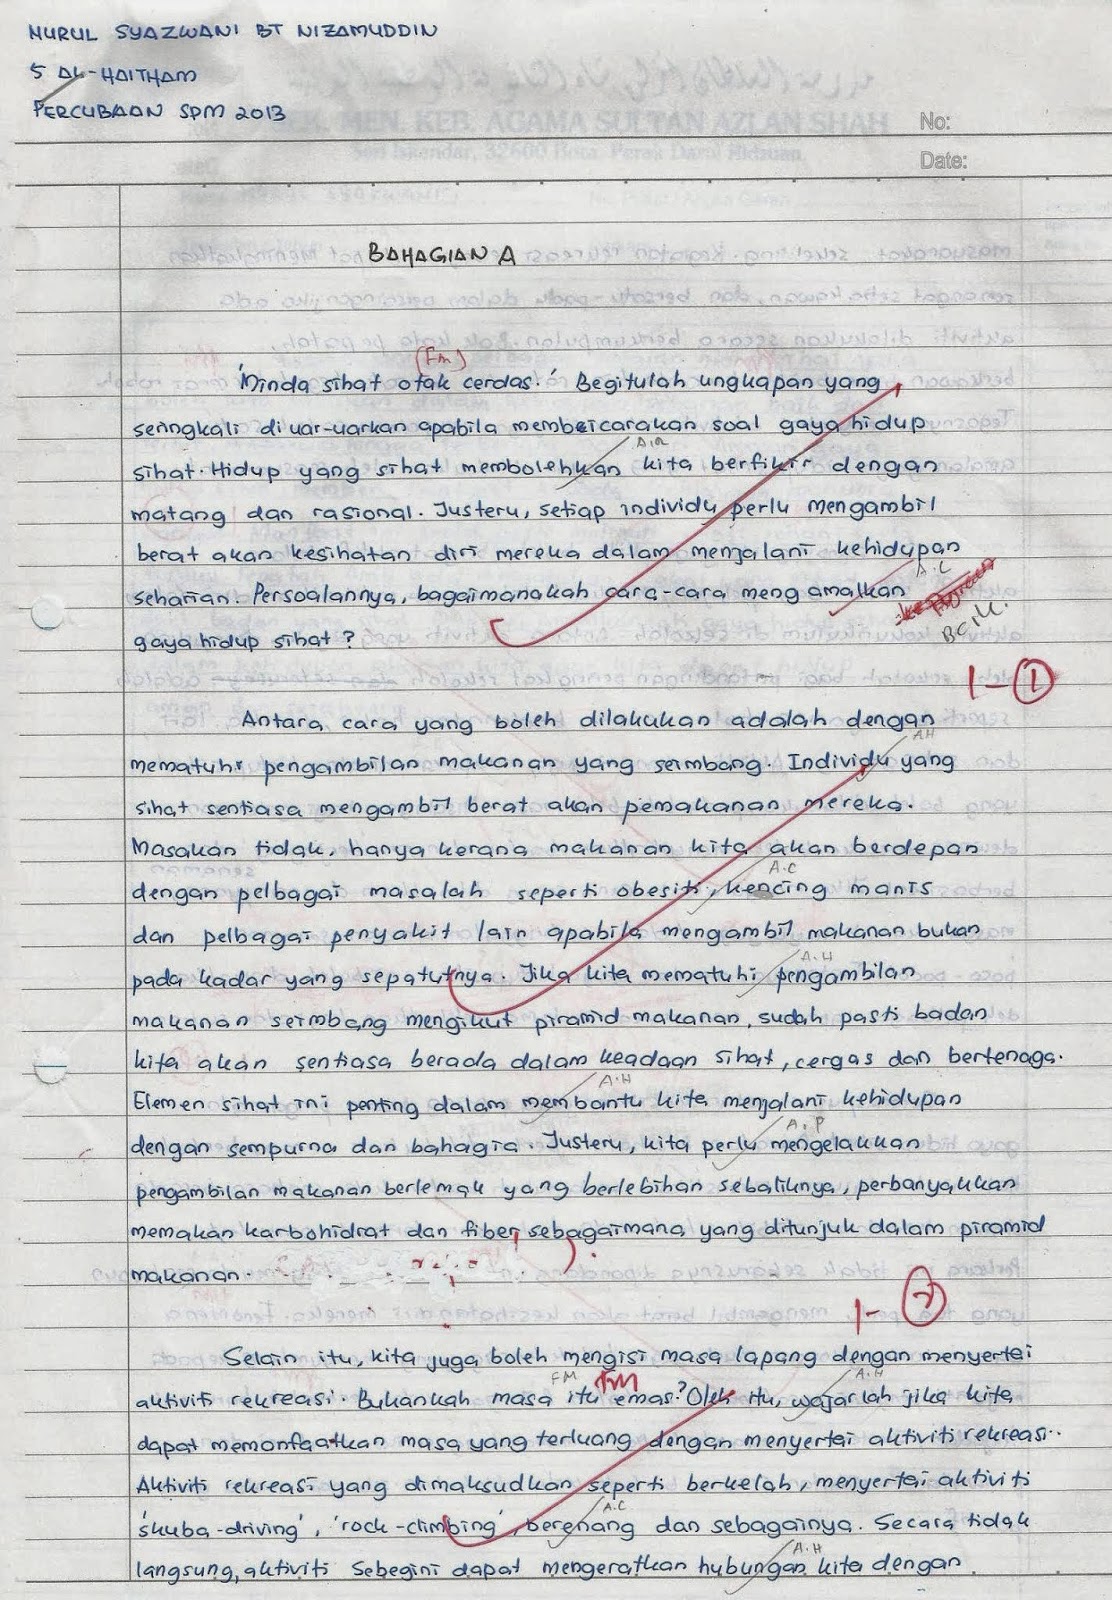 NURUL SYAZWANI BT NIZAMUDDIN
5 AL-HAITHAM
PERCUBAAN SPM 2013
SEK. MEN. KEB. AGAMA SULTAN AZLAN SHAH
No:
Seri Iskandar, 32600 Bota, Perak Darul Ridzuan
Date:
BAHAGIAN A
(FM)
'Minda sihat otak cerdas.' Begitulah ungkapan yang
seringkali diuar-uarkan apabila membicarakan soal gaya hidup
A.H
sihat. Hidup yang sihat membolehkan kita berfikir dengan
matang dan rasional. Justeru, setiap individu perlu mengambil
berat akan kesihatan diri mereka dalam menjalani kehidupan
A.C
seharian. Persoalannya, bagaimanakah cara-cara mengamalkan
BCM.
gaya hidup sihat?
1-1
Antara cara yang boleh dilakukan adalah dengan
AH
mematuhi pengambilan makanan yang seimbang. Individu yang
sihat sentiasa mengambil berat akan pemakanan mereka.
Masakan tidak, hanya kerana makanan kita akan berdepan
A.C
dengan pelbagai masalah seperti obesiti, kencing manis
dan pelbagai penyakit lain apabila mengambil makanan bukan
A.H
pada kadar yang sepatutnya. Jika kita mematuhi pengambilan
makanan seimbang mengikut piramid makanan, sudah pasti badan
kita akan sentiasa berada dalam keadaan sihat, cergas dan bertenaga.
A.H
Elemen sihat ini penting dalam membantu kita menjalani kehidupan
A.P
dengan sempurna dan bahagia. Justeru, kita perlu mengelakkan
pengambilan makanan berlemak yang berlebihan sebaliknya, perbanyakkan
memakan karbohidrat dan fiber sebagaimana yang ditunjuk dalam piramid
makanan.
1-2
Selain itu, kita juga boleh mengisi masa lapang dengan menyertai
FM FM A.H
aktiviti rekreasi. Bukankah masa itu emas? Oleh itu, wajarlah jika kita
dapat memanfaatkan masa yang terluang dengan menyertai aktiviti rekreasi.
Aktiviti rekreasi yang dimaksudkan seperti berkelah, menyertai aktiviti
A.C
'skuba-driving', 'rock-climbing', berenang dan sebagainya. Secara tidak
A.H
langsung, aktiviti sebegini dapat mengeratkan hubungan kita dengan